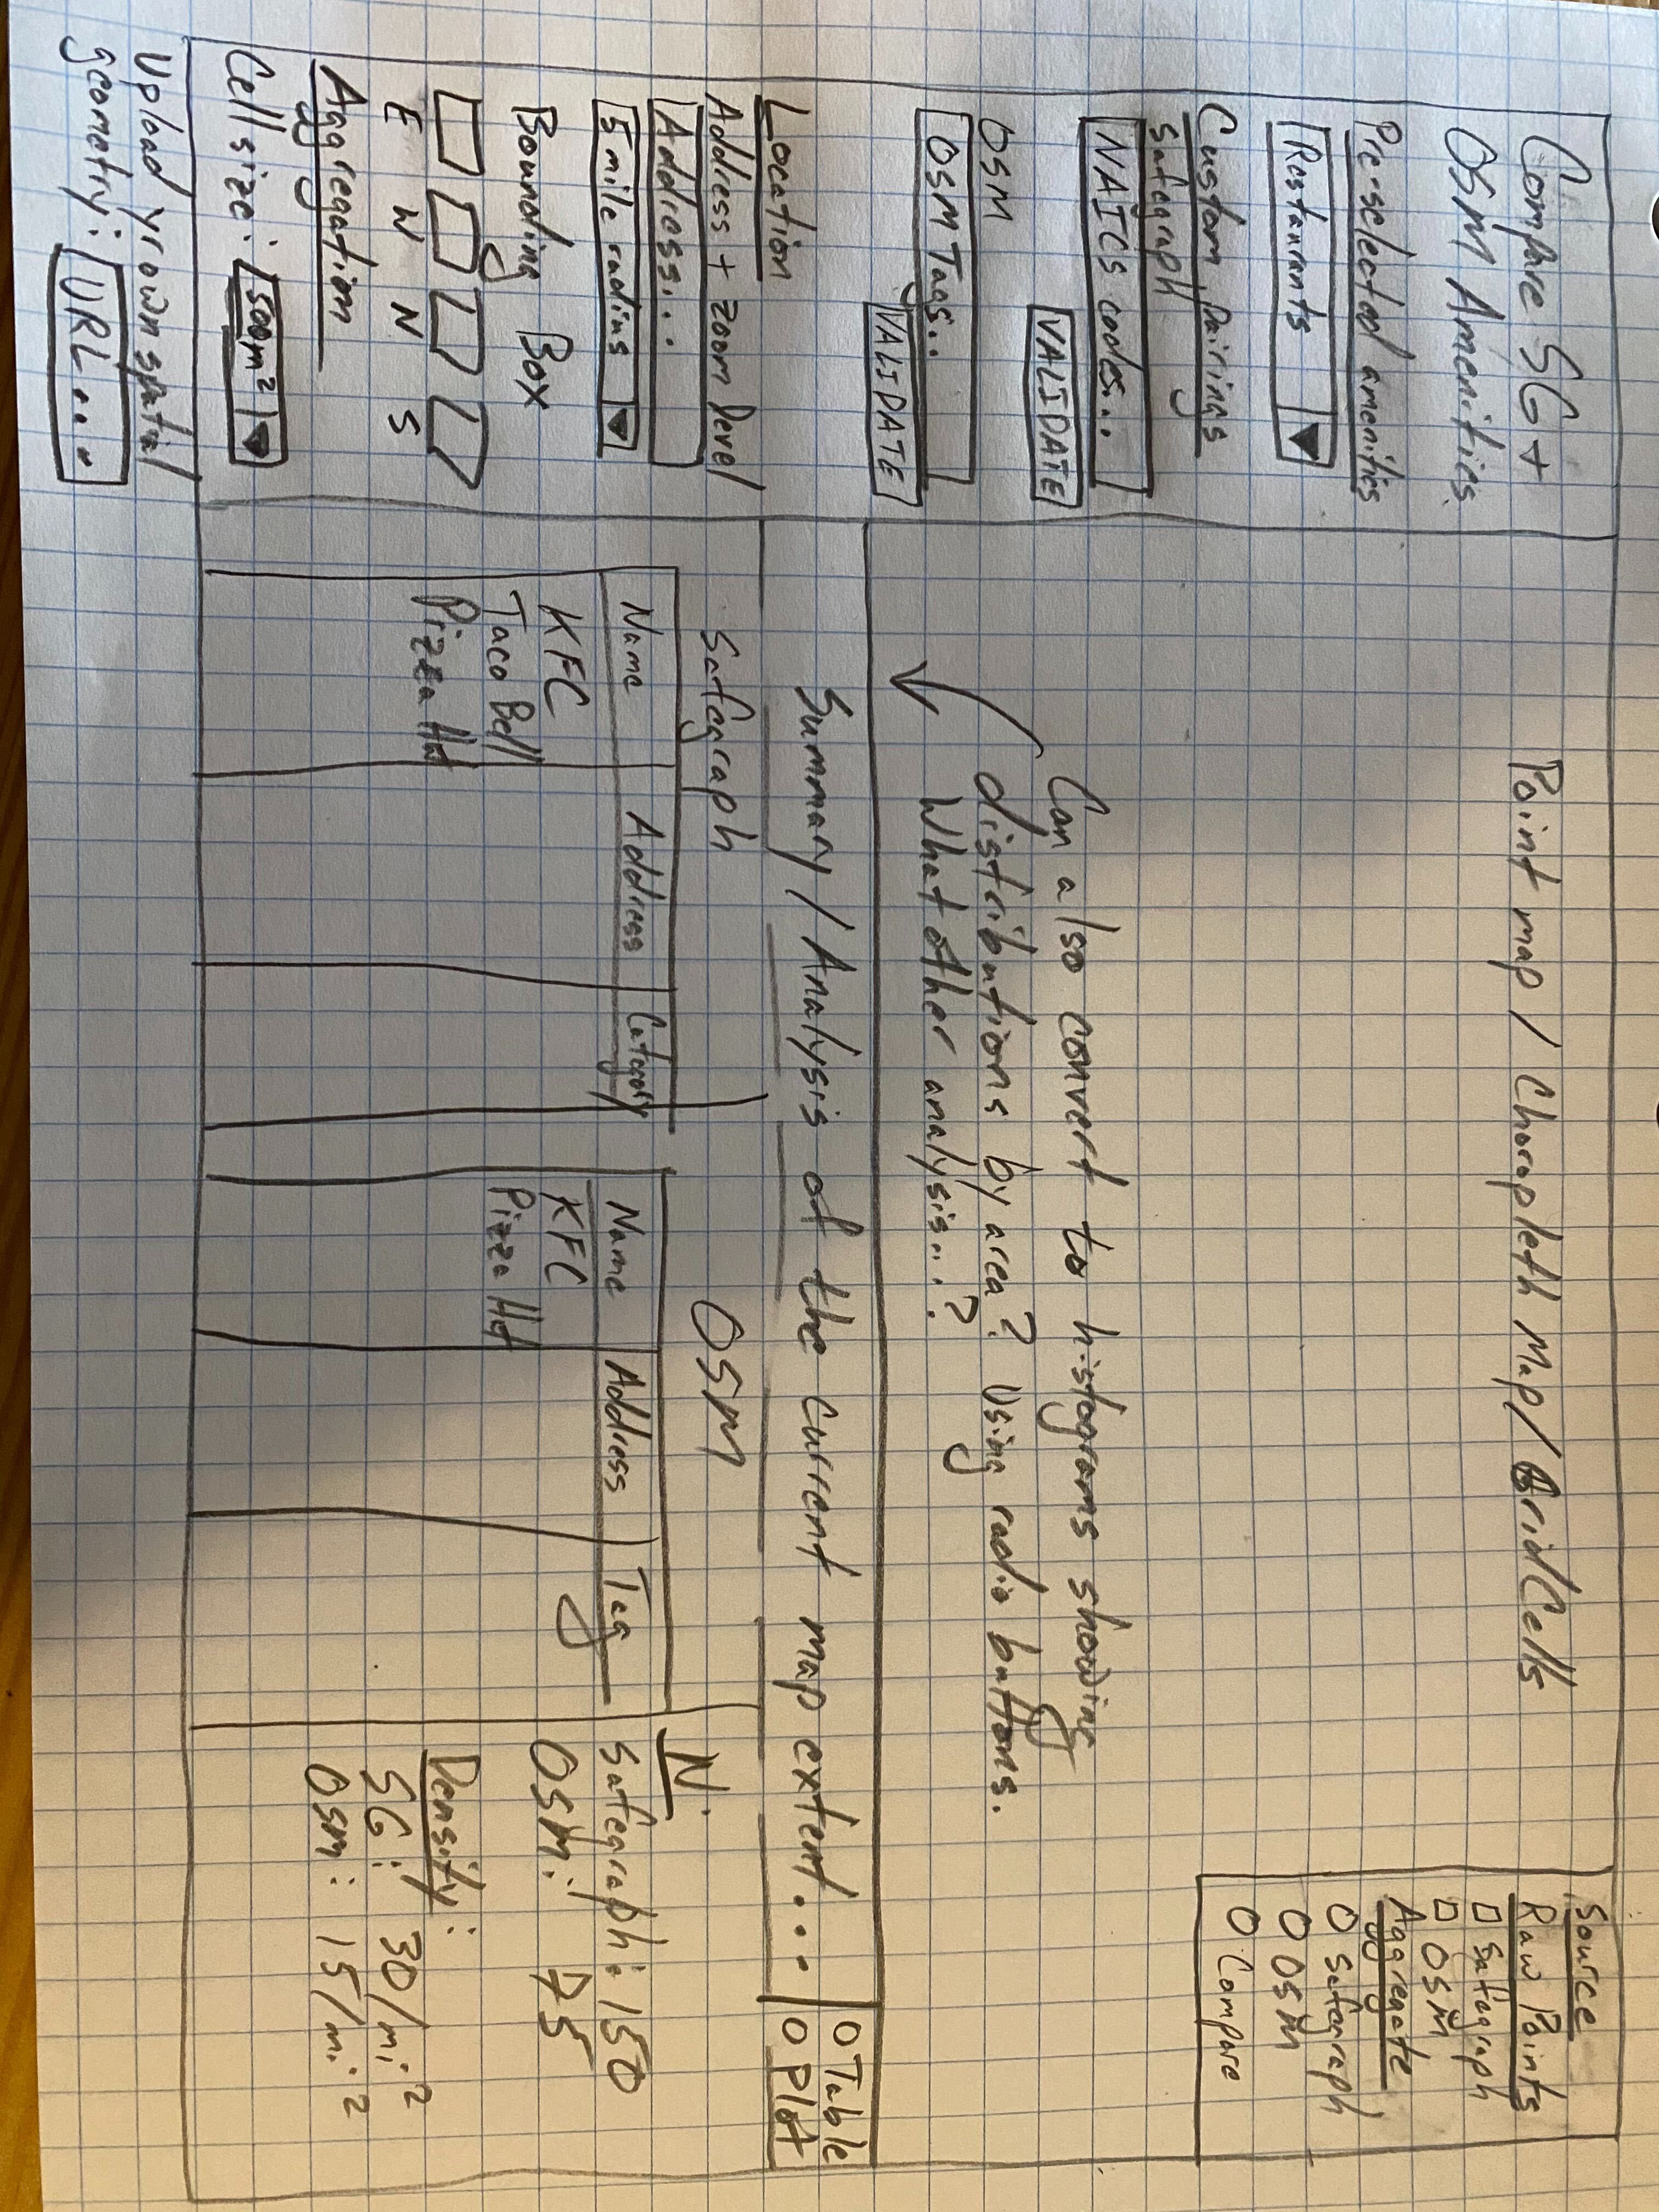 Compare SG +
OSM Amenities
Pre-selected amenities
Restaurants
Custom pairings
Safegraph
NAICS codes...
VALIDATE
OSM
OSM Tags...
VALIDATE
Location
Address + zoom level
Address...
5 mile radius
Bounding Box
E W N S
Aggregation
Cell size: 500m²
Upload yr own spatial
geometry: URL...
Point map / Choropleth Map / Grid Cells
Source
Raw Points
Safegraph
OSM
Aggregate
Safegraph
OSM
Compare
Can also convert to histograms showing
distributions by area? Using radio buttons.
What other analysis...?
Summary / Analysis of the current map extent...
Table
Plot
Safegraph
Name Address Category
KFC
Taco Bell
Pizza Hut
OSM
Name Address Tag
KFC
Pizza Hut
N:
Safegraph: 150
OSM: 75
Density:
SG: 30/mi²
OSM: 15/mi²